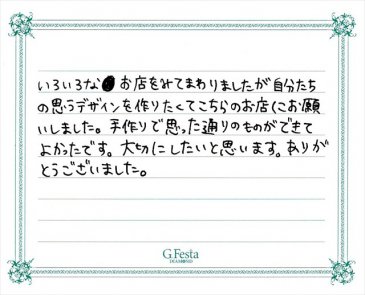 いろいろなお店をみてまわりましたが自分たち
の思うデザインを作りたくてこちらのお店にお願
いしました。手作りで思った通りのものができて
よかったです。大切にしたいと思います。ありが
とうございました。
G.Festa
DIAMOND